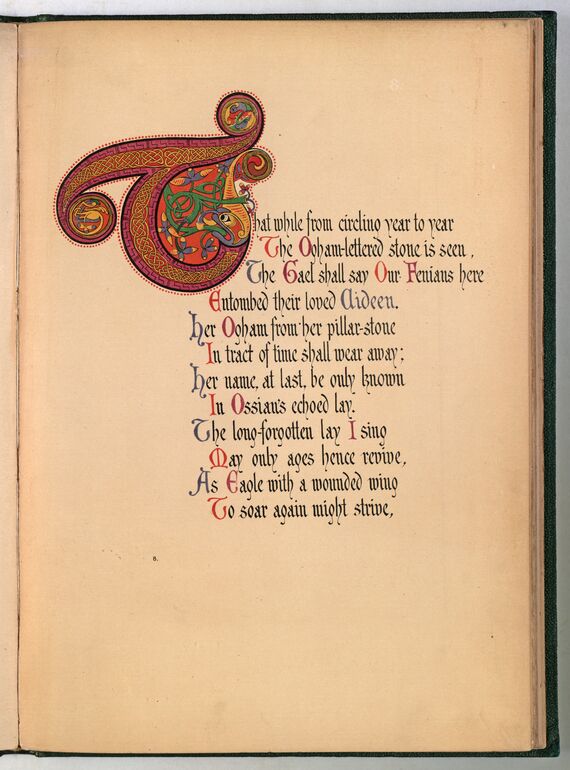 That while from circling year to year
The Ogham-lettered stone is seen,
The Gael shall say Our Fenians here
Entombed their loved Aideen.
her Ogham from her pillar-stone
In tract of time shall wear away;
her name, at last, be only known
In Ossian's echoed lay.
The long-forgotten lay I sing
May only ages hence revive,
As Eagle with a wounded wing
To soar again might strive,
8.